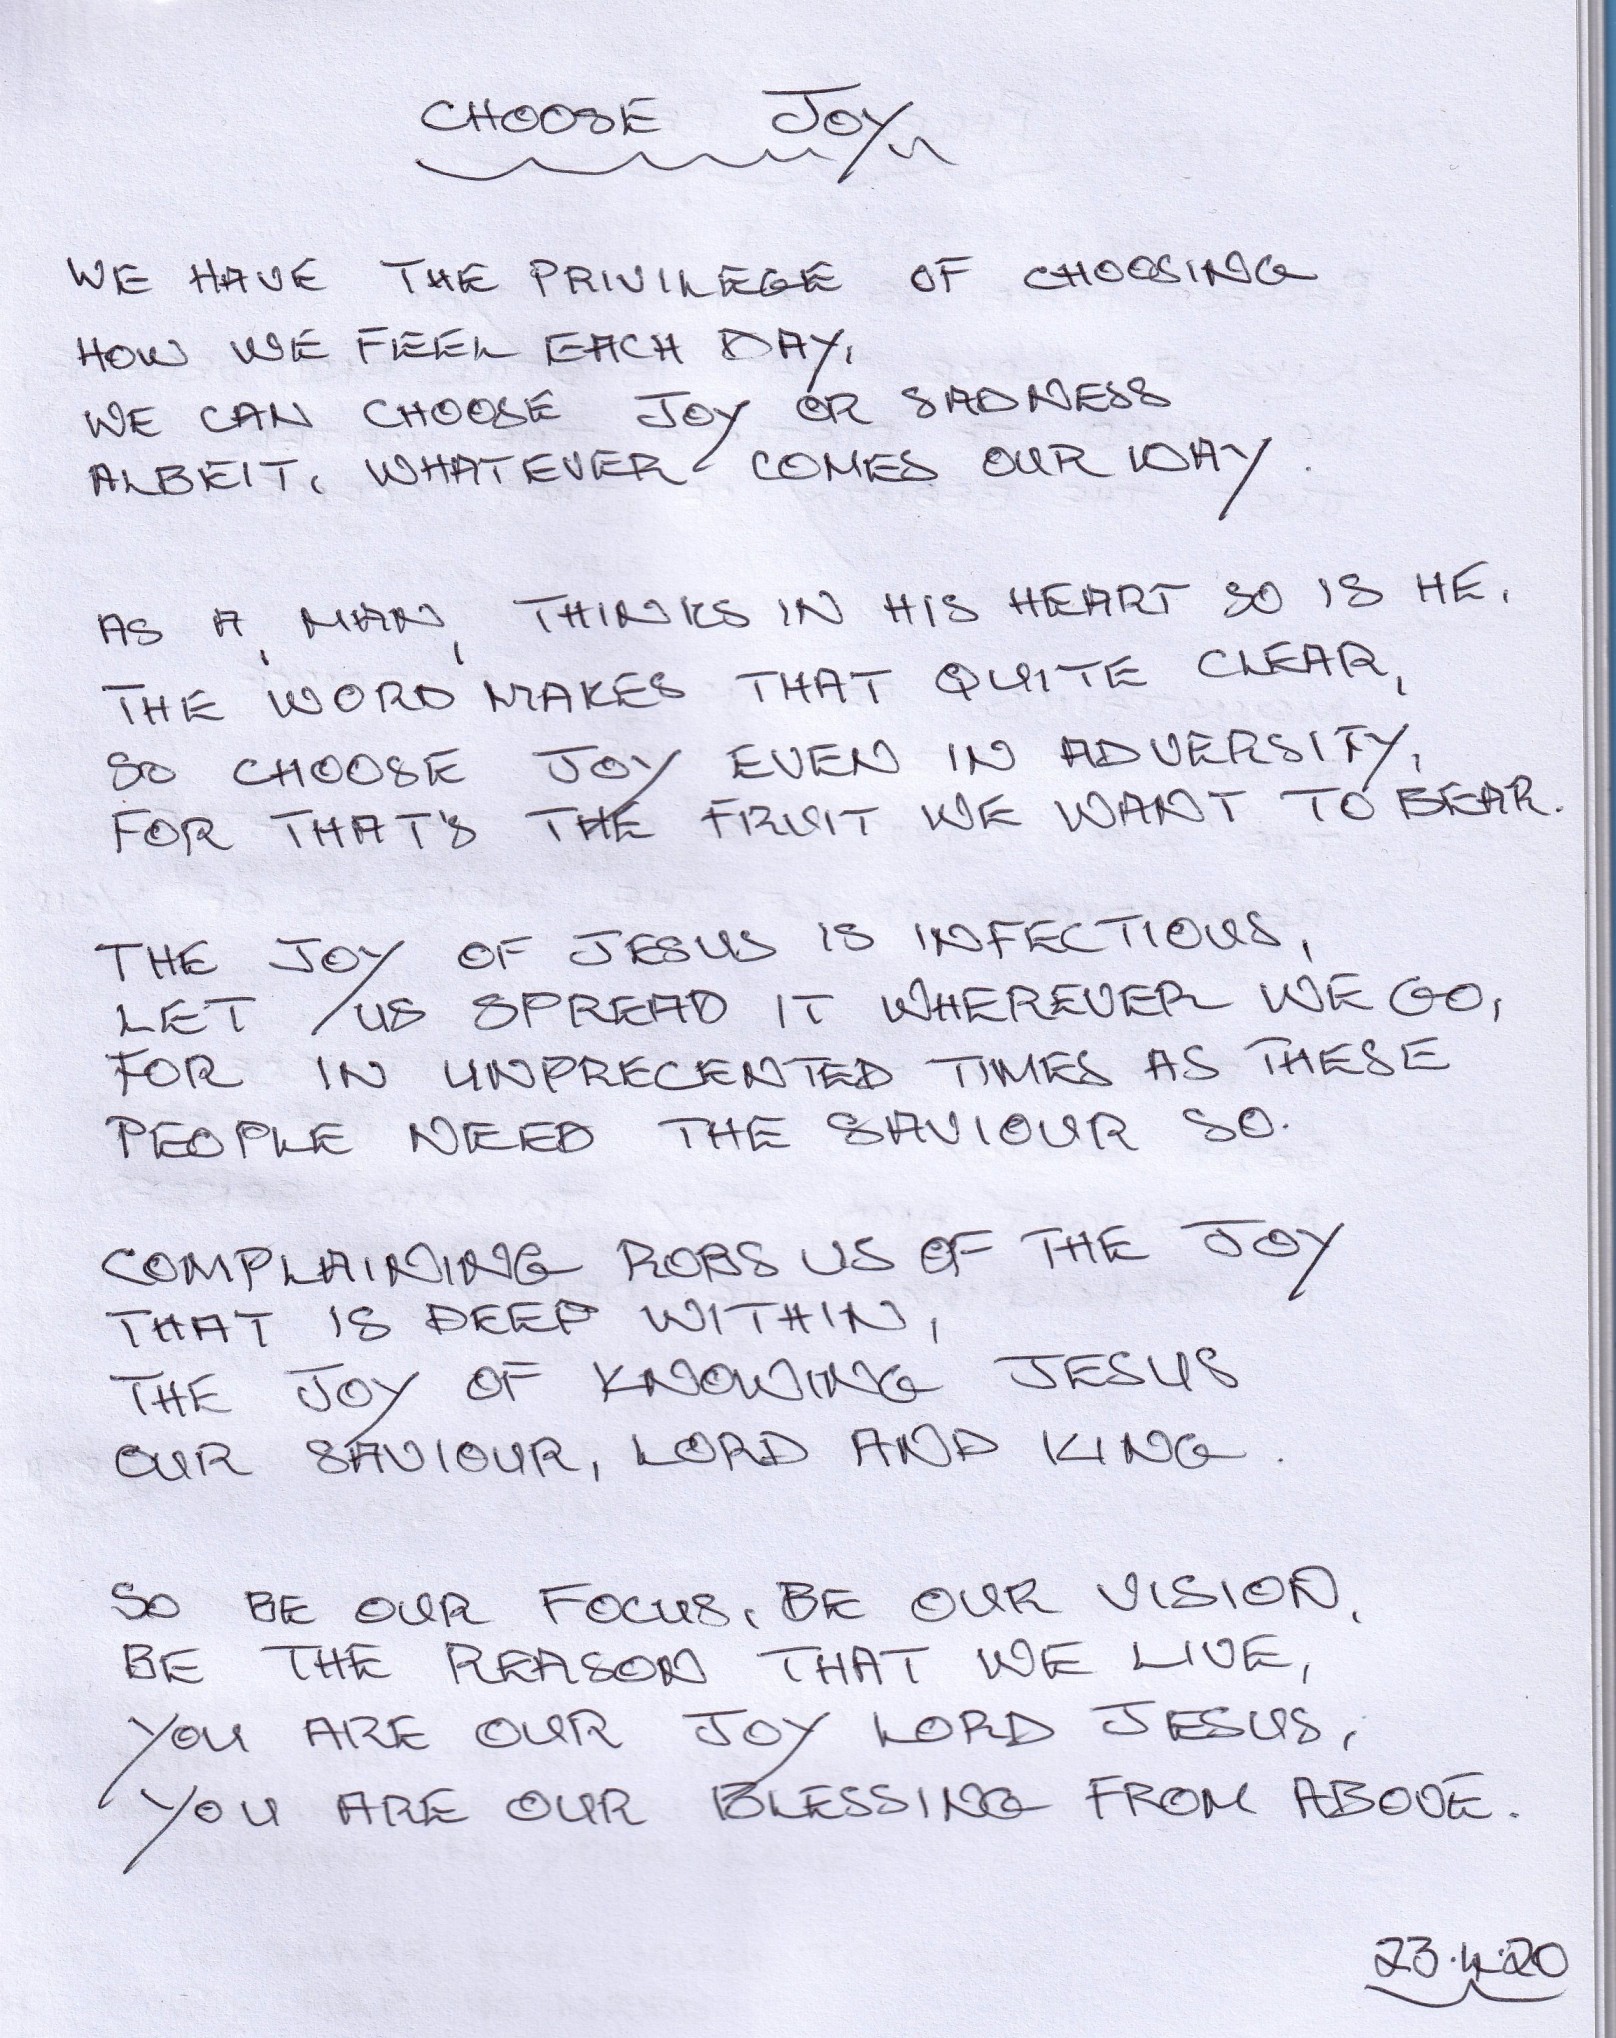 CHOOSE JOY
WE HAVE THE PRIVILEGE OF CHOOSING
HOW WE FEEL EACH DAY,
WE CAN CHOOSE JOY OR SADNESS
ALBEIT, WHATEVER COMES OUR WAY.
AS A, MAN, THINKS IN HIS HEART SO IS HE,
THE WORD MAKES THAT QUITE CLEAR,
SO CHOOSE JOY EVEN IN ADVERSITY,
FOR THAT'S THE FRUIT WE WANT TO BEAR.
THE JOY OF JESUS IS INFECTIOUS,
LET US SPREAD IT WHEREVER WE GO,
FOR IN UNPRECENTED TIMES AS THESE
PEOPLE NEED THE SAVIOUR SO.
COMPLAINING ROBS US OF THE JOY
THAT IS DEEP WITHIN,
THE JOY OF KNOWING JESUS
OUR SAVIOUR, LORD AND KING.
SO BE OUR FOCUS, BE OUR VISION,
BE THE REASON THAT WE LIVE,
YOU ARE OUR JOY LORD JESUS,
YOU ARE OUR BLESSING FROM ABOVE.
23.4.20